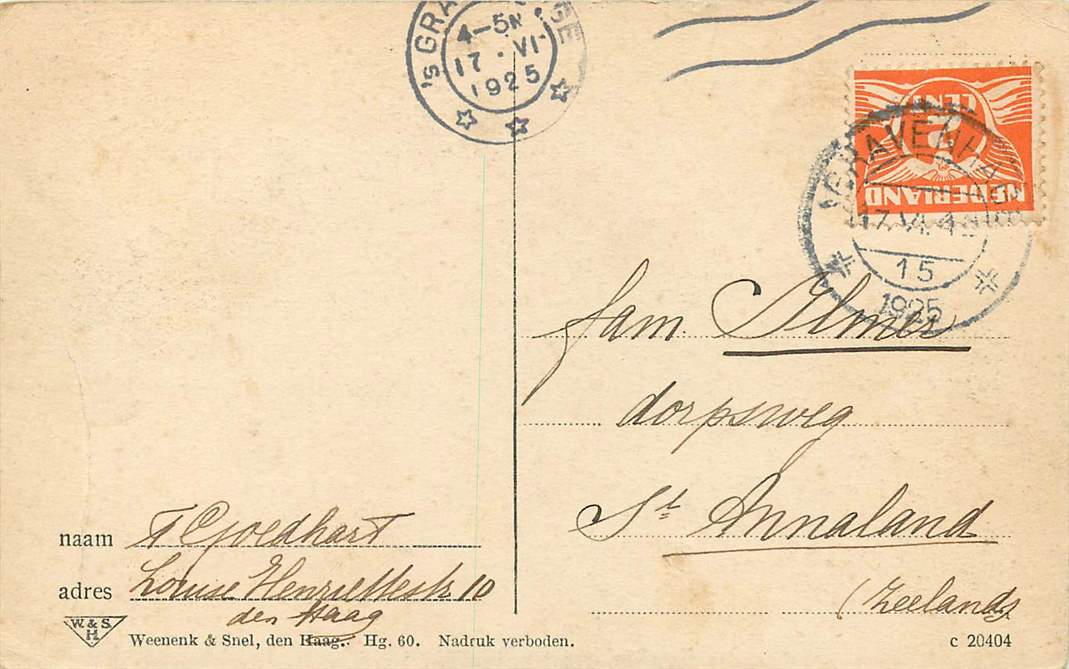 'sGRA GE
4–5N
17 · VI
1925
CENT
2
NEDERLAND
'sGRAVENHAGE
17.VI. 4
15
1925
fam. Ilmer
dorpsweg
St Annaland
(Zeeland)
naam F Goedhart
adres Louise Henriëttestr 10
den Haag
W.& S.
H
Weenenk & Snel, den Haag. Hg. 60. Nadruk verboden.
c 20404